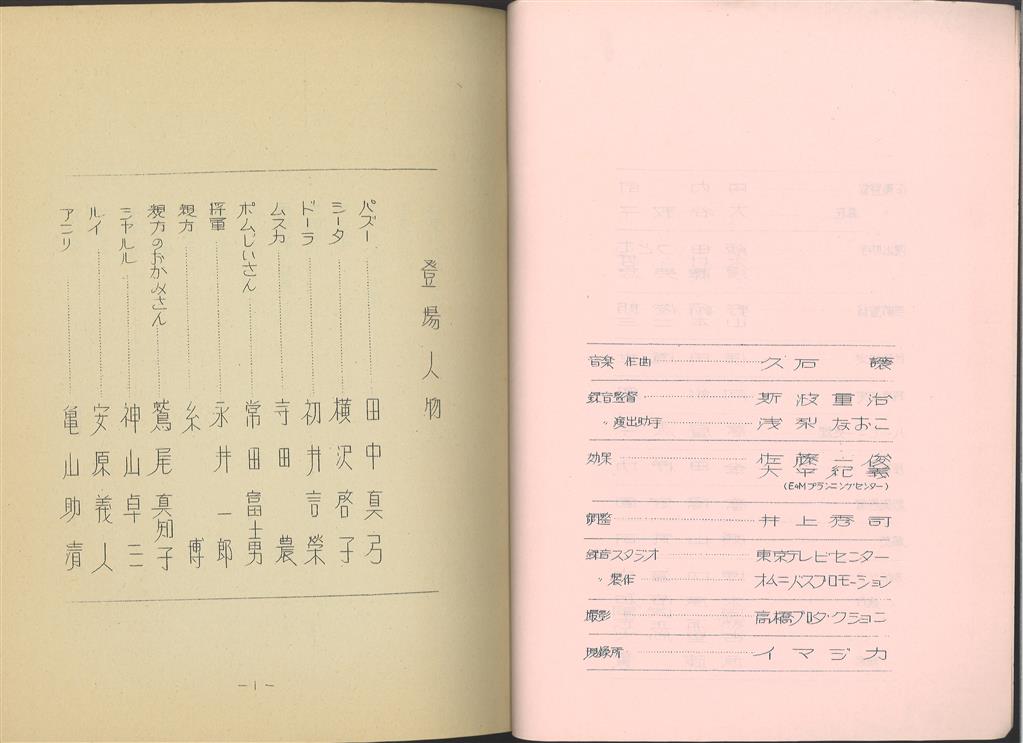 登場人物
パズー……田中真弓
シータ……横沢啓子
ドーラ……初井言榮
ムスカ……寺田農
ポムじいさん……常田富士男
将軍……永井一郎
親方……糸博
親方のおかみさん……鷲尾真知子
シャルル……神山卓三
ルイ……安原義人
アンリ……亀山助清
-1-
音楽 作曲……久石譲
録音監督……斯波重治
〃演出助手……浅梨なおこ
効果……佐藤一俊
大平紀義
(E&Mプランニングセンター)
調整……井上秀司
録音スタジオ……東京テレビセンター
〃製作……オムニバスプロモーション
撮影……高橋プロダクション
現像所……イマジカ